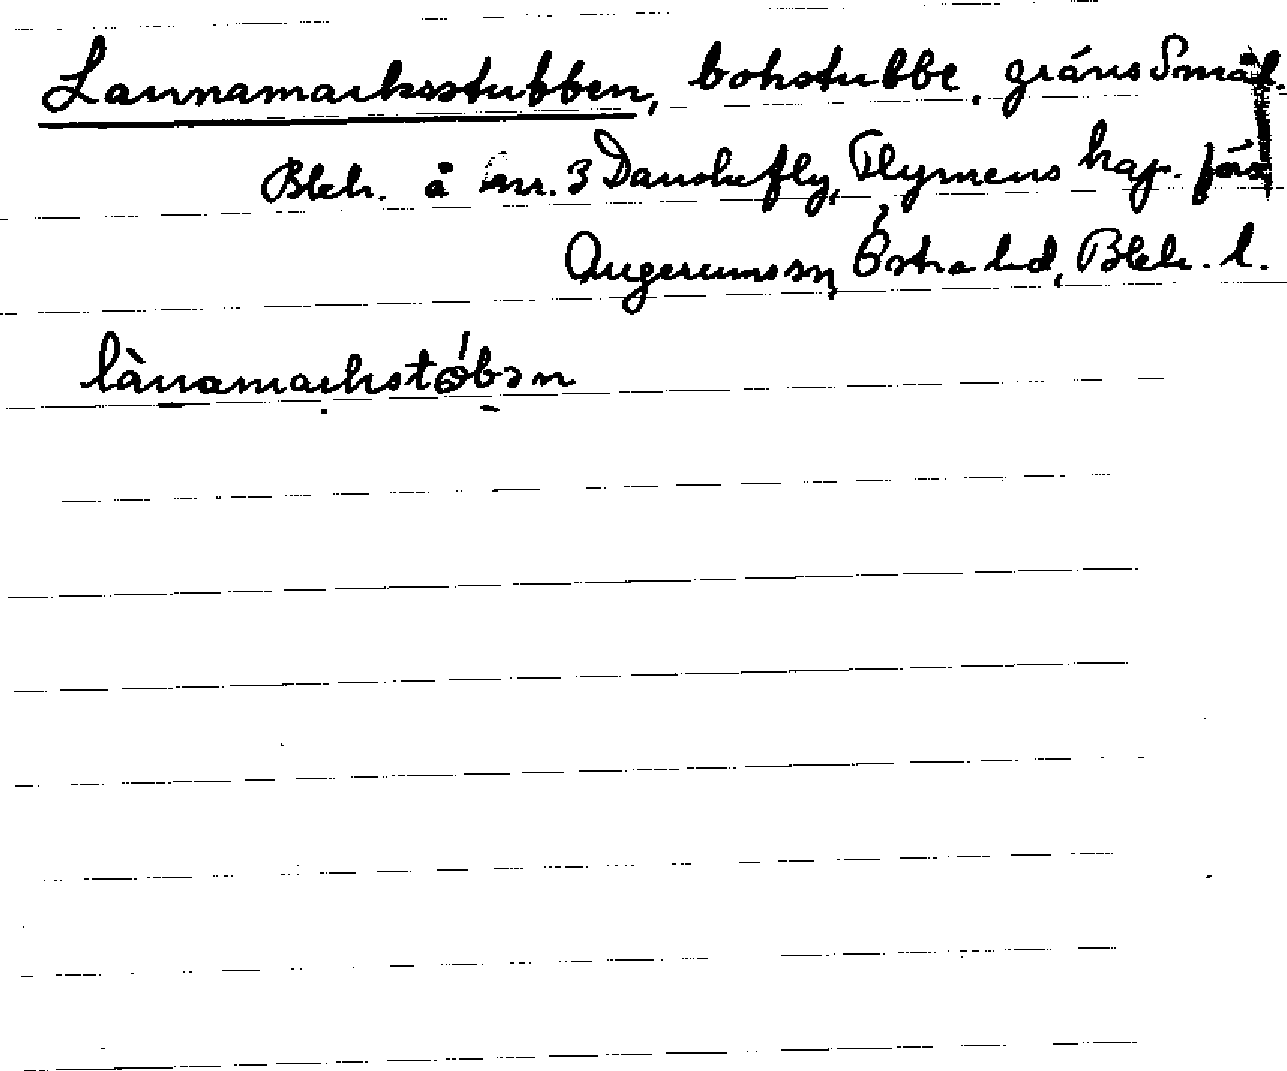 Lannamarksstubben, bokstubbe, gräns Smål.
Blek. å nr. 3 Danskefly, Flymens kap. förs
Augerums sn, Östra hd, Blek. l.
lànnamarkstóbən